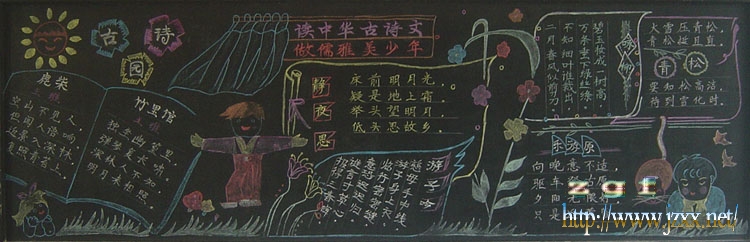 古诗园
读中华古诗文
做儒雅美少年
鹿柴
王维
空山不见人，
但闻人语响。
返景入深林，
复照青苔上。
竹里馆
王维
独坐幽篁里，
弹琴复长啸。
深林人不知，
明月来相照。
静夜思
床前明月光，
疑是地上霜。
举头望明月，
低头思故乡。
游子吟
慈母手中线
游子身上衣
临行密密缝
意恐迟迟归
谁言寸草心
报得三春晖
咏柳
碧玉妆成一树高，
万条垂下绿丝绦。
不知细叶谁裁出，
二月春风似剪刀。
青松
大雪压青松，
青松挺且直。
乐游原
向晚意不适
zgf
http://www.jzxx.net/